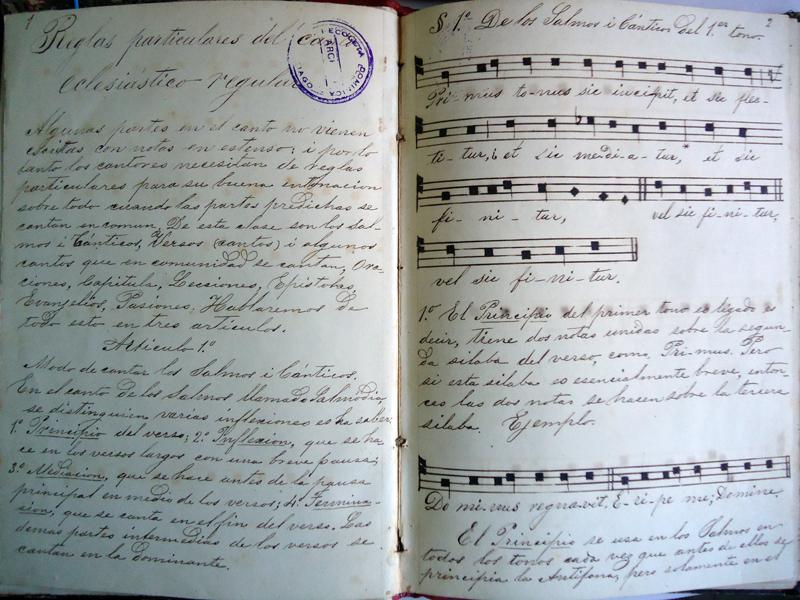 1
Reglas particulares del canto
eclesiastico regular
Algunas partes en el canto no vienen
escritas con notas en estenso; i por lo
tanto los cantores necesitan de reglas
particulares para su buena entonacion
sobre todo cuando las partes predichas se
cantan en comun. De esta clase son los Sal-
mos i Cánticos, Versos (cantos) i algunos
cantos que en comunidad se cantan, Ora-
ciones, Capitula, Lecciones, Epistolas,
Evangelios, Pasiones. Hablaremos de
todo esto en tres articulos.
Articulo 1º
Modo de cantar los Salmos i Cánticos.
En el canto de los Salmos llamado Salmodia,
se distinguen varias inflexiones es ha saber:
1º Principio del verso; 2º Inflexion, que se ha-
ce en los versos largos con una breve pausa;
3º Mediacion, que se hace antes de la pausa
principal en medio de los versos; 4º Termina-
cion, que se canta en el fin del verso. Las
demas partes intermedias de los versos se
cantan en la dominante.
2
§ 1º De los Salmos i Cánticos del 1er tono.
Pri-mus to-nus sic incipit, et sic flec-
ti-tur, et sic me-di-a-tur, * et sic
fi-ni-tur, vel sic fi-ni-tur,
vel sic fi-ni-tur.
1º El Principio del primer tono es ligado es
decir, tiene dos notas unidas sobre la segun-
da silaba del verso, como Pri-mus. Pero
si esta silaba es esencialmente breve, enton-
ces las dos notas se hacen sobre la tercera
silaba. Ejemplo.
Do mi-nus regnavit, E-ri-pe me; Domine.
El Principio se usa en los Salmos en
todos los tonos cada vez que antes de ellos se
principia la Antifona, pero solamente en el